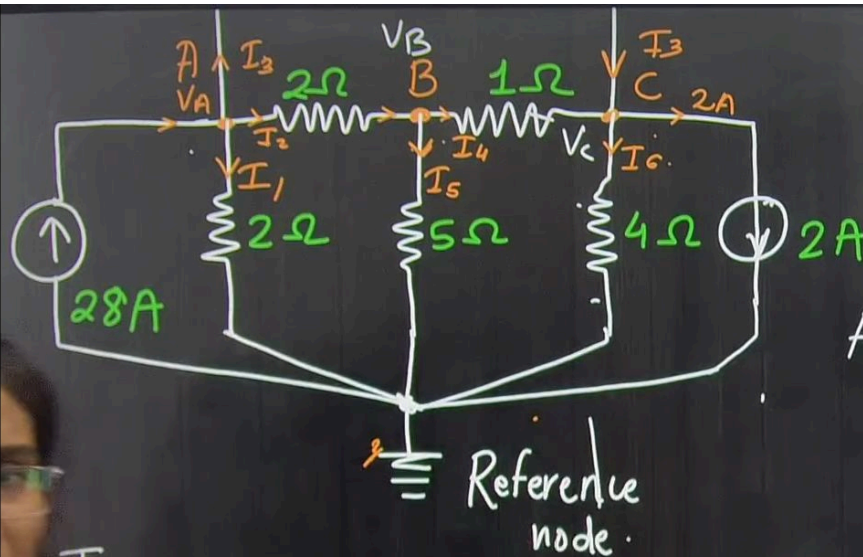 VB
A I3 2Ω B 1Ω I3
VA C 2A
I2 I4 Vc I6.
I1 I5
2Ω 5Ω 4Ω 2A
28A
Reference
node.